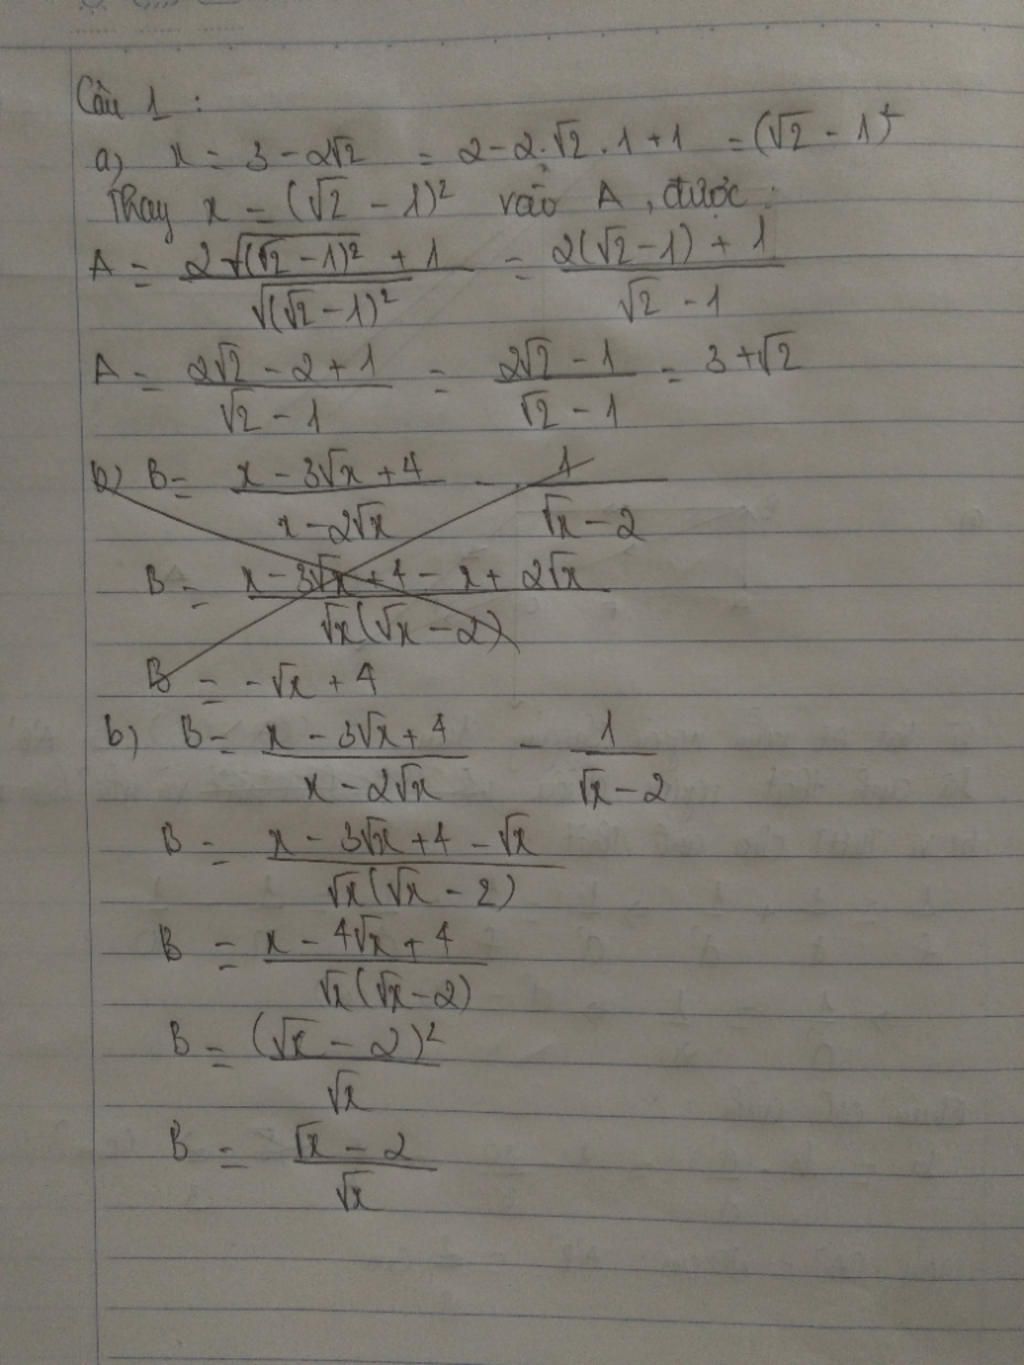 Câu 1 :
a) x = 3 - 2√2 = 2 - 2.√2 . 1 + 1 = (√2 - 1)²
Thay x = (√2 - 1)² vào A, được :
A = (2√((√2 - 1)²) + 1)/(√((√2 - 1)²)) = (2(√2 - 1) + 1)/(√2 - 1)
A = (2√2 - 2 + 1)/(√2 - 1) = (2√2 - 1)/(√2 - 1) = 3 + √2
b) B = (x - 3√x + 4)/(x - 2√x) - 1/(√x - 2)
B = (x - 3√x + 4 - x + 2√x)/(√x(√x - 2))
B = -√x + 4
b) B = (x - 3√x + 4)/(x - 2√x) - 1/(√x - 2)
B = (x - 3√x + 4 - √x)/(√x(√x - 2))
B = (x - 4√x + 4)/(√x(√x - 2))
B = (√x - 2)²/√x
B = (√x - 2)/√x